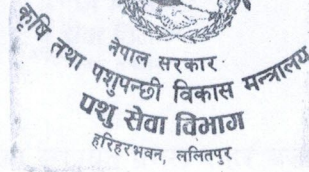 नेपाल सरकार
कृषि तथा पशुपन्छी विकास मन्त्रालय
पशु सेवा विभाग
हरिहरभवन, ललितपुर